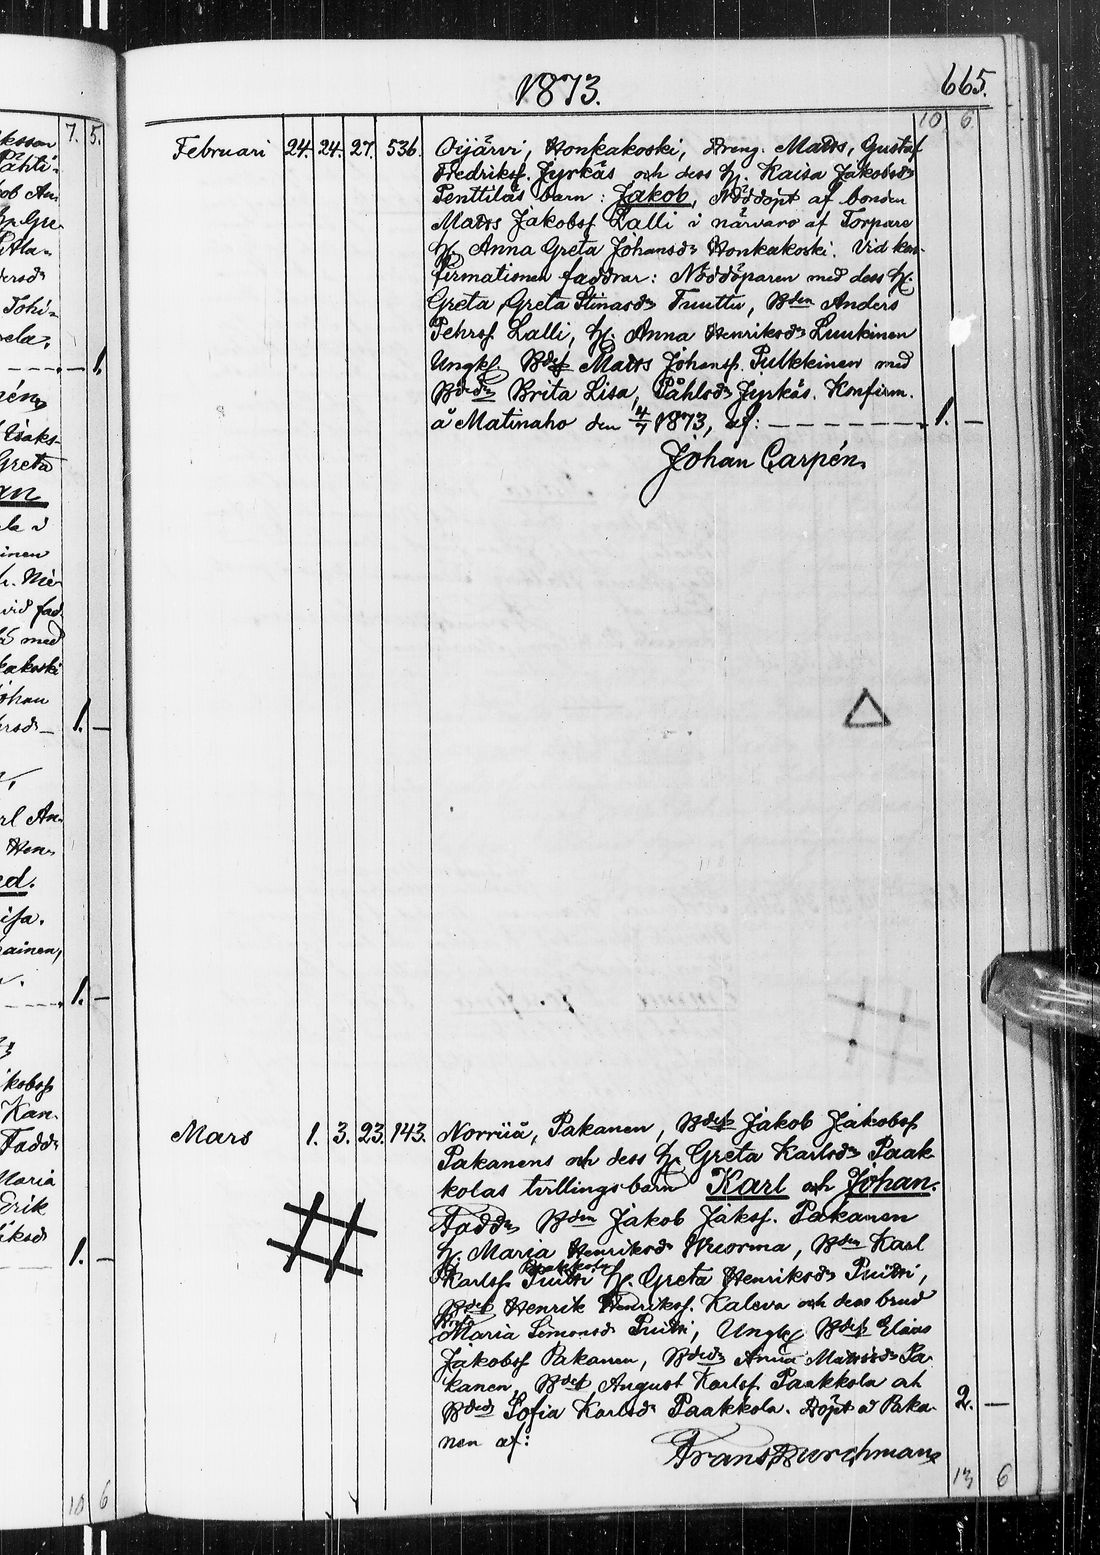 1873.
665.
10 6.
Februari 24. 24. 27. 536. Oijärvi, Honkakoski, Dreng. Matts, Gustaf
Fredriksf. Jyrkäs och dess h. Kaisa Jakobsdr
Penttiläs barn: Jakob, Nöddöpt af bonden
Matts Jakobsf Lalli i närvaro af Torpare
h. Anna Greta Johansdr Honkakoski. Vid kon-
firmationen faddrar: Nöddöparen med dess h.
Greta Greta Stinasdr Tuuttu, Bden Anders
Pehrsf. Lalli, h. Anna Henriksdr Luukinen
Ungkf. Bdsf Matts Johansf. Pulkkinen med
Bdedr Brita Lisa, Påhlsdr Jyrkäs. Konfirm.
å Matinaho den 4/7 1873, af: 1. —
Johan Carpén
Mars 1. 3. 23. 143. Norruå, Pakanen, Bdsf Jakob Jakobsf
Pakanens och dess h. Greta Karlsdr Paak
kolas tvillingsbarn Karl och Johan.
Faddr Bden Jakob Jaksf. Pakanen
h. Maria Henriksdr Wuorma, Bden Karl
Karlsf. h. Greta Henriksdr Puitti,
Bdsf Henrik Henriksf. Kaleva och dess brud
Maria Simonsdr Puitti, Ungkf Bdsf Elias
Jakobsf Pakanen, Bdedr Anna Mattsdr Pa-
kanen, Bdsf August Karlsf. Paakkola och
Bdedr Sofia Karlsdr Paakkola. Döpt å Paka- 2. —
nen af:
Frans Burchman
13 6